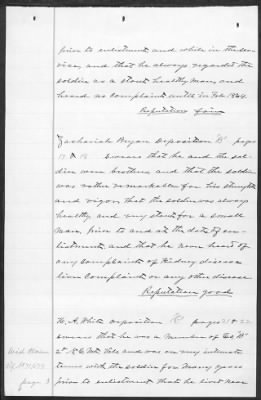 prior to enlistment and while in the ser-
vice, and that he always regarded the
soldier as a stout healthy man, and
heard no complaint until in Feb. 1864.
Reputation fair
Zachariah Bryan Deposition "B" pages
17 & 18 swears that he and the sol-
dier were brothers and that the soldier
was rather remarkable for his strength
and vigor, that the soldier was always
healthy and very stout for a small
man, prior to and at the date of en-
listment, and that he never heard of
any complaints of Kidney disease
liver complaint or any other disease
Reputation good
H. A. White Deposition pages 21 & 22
swears that he was a Member of Co "D"
2" N.C. Mtd. Vols and was on very intimate
terms with the soldier for many years
prior to enlistment that he lived near
page 3